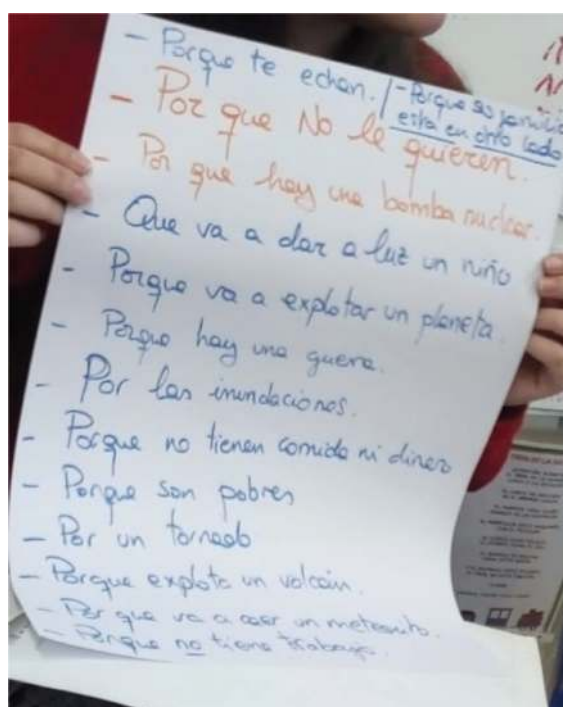 - Porque te echan. / - Porque su familia
está en otro lado
- Por que No le quieren.
- Por que hay una bomba nuclear.
- Que va a dar a luz un niño
- Porque va a explotar un planeta.
- Porque hay una guera.
- Por las inundaciones.
- Porque no tienen comida ni dinero
- Porque son pobres
- Por un tornado
- Porque explota un volcán.
- Por que va a caer un meteorito.
- Porque no tiene trabajo.